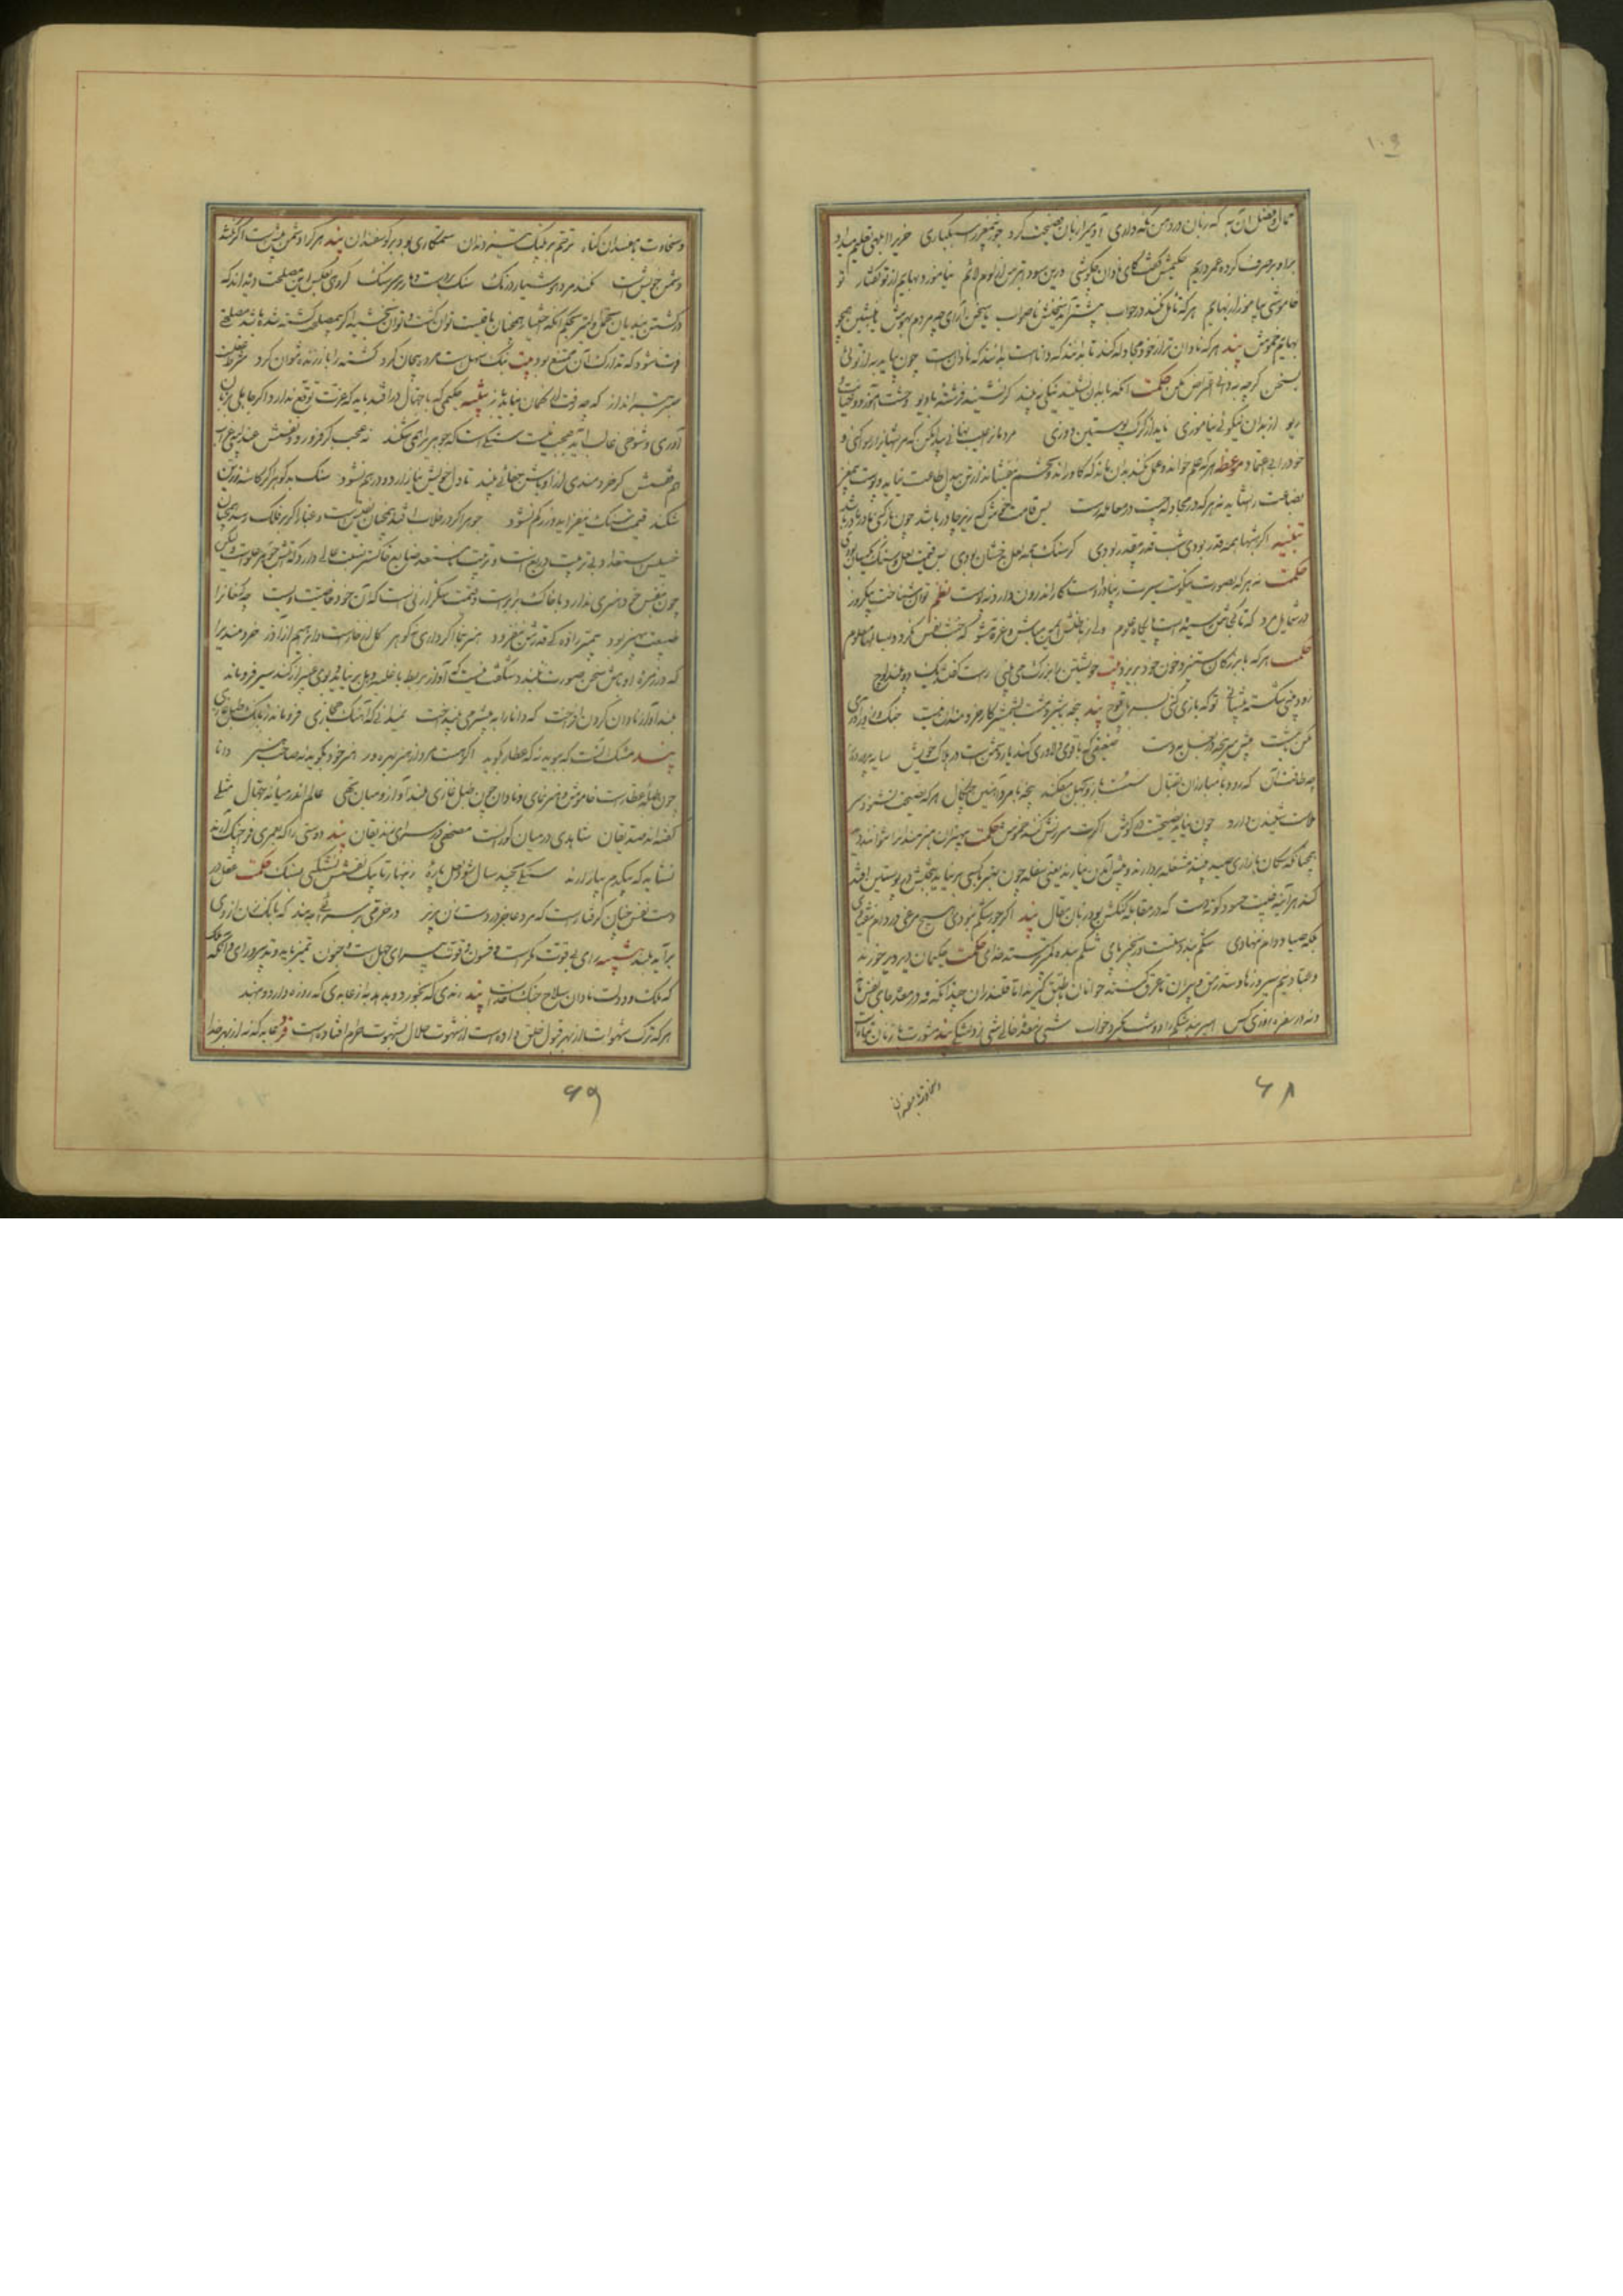 ۱۰۹
کمال و فضل آن به که زبان در دهن نگه داری آدمی را زبان فضیحت کرد جوز بی‌مغز را سبکباری خری را ابلهی تعلیم میداد
برو بر صرف کرده عمر دایم حکیمی گفتش ای نادان چه کوشی درین سودا بترس از لوم لائم نیاموزد بهایم از تو گفتار تو
خاموشی بیاموز از بهایم هر که تامل نکند در جواب بیشتر آید سخنش ناصواب یا سخن آرای چو مردم بهوش یا بنشین همچو
بهایم خموش پند هر که با نادان‌تر از خود مجادله کند تا بدانند که داناست بدانند که نادانست چون درآید به از توئی
بسخن گرچه به دانی اعتراض مکن حکمت آنکه با بدان نشیند نیکی نبیند گر نشیند فرشته با دیو وحشت آموزد و خیانت و
ریو از بدان نیکوئی نیاموزی ناید از گرگ پوستین دوزی مردمان را عیب نهانی پیدا مکن که مر ایشانرا رسوا کنی و
خود را بی اعتماد موعظه هر که علم خواند و عمل نکند بدان ماند که گاو راند و تخم نیفشاند از تن بیدل طاعت نیاید و پوست بیمغز
بضاعت را نشاید نه هر که در مجادله چست در معامله درست بس قامت خوش که زیر چادر باشد چون باز کنی مادر مادر باشد
تنبیه اگر شبها همه قدر بودی شب قدر بیقدر بودی گر سنگ همه لعل بدخشان بودی پس قیمت لعل و سنگ یکسان بودی
حکمت نه هر که بصورت نیکوست سیرت زیبا دروست کار اندرون دارد نه پوست نظم توان شناخت بیکروز
در شمایل مرد که تا کجاش رسیده است پایگاه علوم ولی ز باطنش ایمن مباش و غره مشو که خبث نفس نگردد بسالها معلوم
حکمت هر که با بزرگان ستیزد خون خود بریزد بیت خویشتن را بزرگ می بینی راست گفتند یک دو بیند لوچ
زود بینی شکسته پیشانی تو که بازی کنی بسر با قوچ پند پنجه با شیر و مشت با شمشیر کار خردمندان نیست جنگ و زورآوری
مکن با مست پیش سرپنجه در بغل نه دست ضعیفی که با قوی دلاوری کند یار دشمنست در هلاک خویش سایه پرورده را
چه طاقت آن که رود با مبارزان بقتال سست بازو بجهل میفکند پنجه با مرد آهنین چنگال هر که نصیحت نشنود سر
ملامت شنیدن دارد چون نیاید نصیحت در گوش اگرت سرزنش کنند خموش حکمت بیهنران هنرمندانرا نتوانند دید
همچنانکه سگان بازاری صید بیند مشغله بردارند و پیش آمدن نیارند یعنی سفله چون بهنر با کسی برنیاید بخبثش در پوستین افتد
کند هر آینه غیبت حسود کوته دست که در مقابله گنگش بود زبان مقال پند اگر جور شکم نبودی هیچ مرغی در دام نیفتادی
بلکه صیاد دام ننهادی شکم بند دستست و زنجیر پای شکم بنده کمتر پرستد خدای حکمت حکیمان دیر دیر خورند
و عابدان نیم سیر و زاهدان سد رمق و پیران تا عرق کنند و جوانان تا طبق برگیرند اما قلندران چندانکه در معده جای نفس نماند
و نه در سفره روزی کس اسیر بند شکم را دو شب نگیرد خواب شبی ز معده خالی شبی ز دلتنگی پند مشورت با زنان تباهست
وسخاوت با مفسدان
۶۸
و سخاوت با مفسدان گناه ترحم بر پلنگ تیزدندان ستمکاری بود بر گوسفندان پند هر کرا دشمن پیشست اگر نکشد
دشمن خویشست نکند مرد هوشیار درنگ سنگ بر دست و مار بر سر سنگ گروهی بعکس این مصلحت دیده‌اند که
در کشتن بندیان تحمل اولیتر بحکم آنکه اختیار همچنان باقیست توان کشت و توان بخشید اگر بیمصلحت کشته شود مانند مصلحتی
فوت شود که تدارک آن ممتنع بود بیت نیک سهلست مرده بیجان کرد کشته را باز زنده نتوان کرد شرط عقلست
صبر تیرانداز که چو رفت از کمان نیاید باز تنبیه حکیمی که با جهال درافتد باید که عزت توقع ندارد و اگر جاهلی بزبان
آوری و شوخی غالب آید عجب نیست سنگیست که جوهر را همی شکند نه عجب گر فرو رود نفسش عندلیبی غراب
هم قفسش گر خردمندی از اوباش جفائی بیند تا دل خویش نیازارد و درهم نشود سنگ بدگوهر اگر کاسه زرین
شکند قیمت سنگ نیفزاید و زر کم نشود جوهر اگر در خلاب افتد همچنان نفیس است و غبار اگر بر فلک رسد همچنان
خسیس استعداد بی تربیت دریغست و تربیت نامستعد ضایع خاکستر نسبت عالی دارد که آتش جوهر علویست ولیکن
چون بنفس خود هنری ندارد با خاک برابرست و قیمت شکر از نی است که آن خود خاصیت ویست چو کنعانرا
طبیعت بیهنر بود پیمبرزادگی قدرش نیفزود هنر بنما اگر داری نه گوهر گل از خارست و ابراهیم از آزر خردمندی را
که در زمره اوباش سخن صورت نبندد شگفت نیست که آواز بربط با غلبه دهل برنیاید و بوی عبیر از گند سیر فروماند
بلند آواز نادان گردن افراخت که دانا را به بیشرمی بینداخت نمیداند که آهنگ حجازی فروماند ز بانگ طبل غازی
پند مشک آنست که ببوید نه که عطار بگوید اگر هست مرد از هنر بهره‌ور هنر خود بگوید نه صاحب هنر دانا
چون طبله عطارست خاموش و هنرنمای و نادان چون طبل غازی بلند آواز و میان تهی عالم اندر میانه جهال مثلی
گفته‌اند صدیقان شاهدی در میان کورانست مصحفی در سرای زندیقان پند دوستی را که بعمری فرا چنگ آرند
نشاید که بیکدم بیازارند سنگی بچند سال شود لعل پاره زنهار تا بیک نفسش نشکنی بسنگ حکمت عقل در
دست نفس چنان گرفتارست که مرد عاجز در دست زن گربز در خرمی بر سرائی ببند که بانگ زن از وی
برآید بلند تنبیه رای بی قوت مکرست و فسون و قوت بیرای جهلست و جنون تمیز باید و تدبیر و رای و آنگه ملک
که ملک و دولت نادان سلاح جنگ خداست پند رندی که بخورد و بدهد به از عابدی که روزه دارد و بنهد
هر که ترک شهوات از بهر قبول خلق داده است از شهوت حلال بشهوت حرام افتاده است فرد عابد که نه از بهر خدا
۶۹